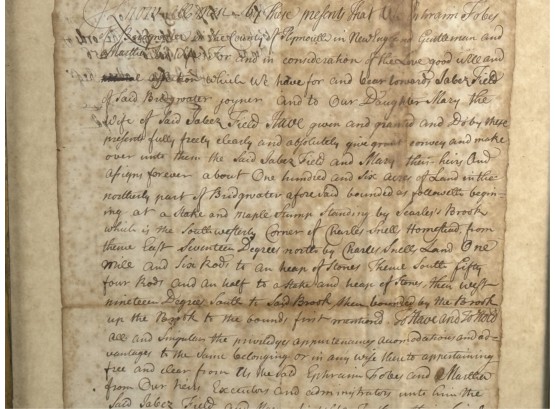 Know all men by these presents that We Ephraim Fobes
of Bridgwater in the County of Plymouth in New England Gentleman and
Martha his wife For and in consideration of the love good will and
affection which We have for and bear towards Jabez Field
of Said Bridgwater joyner and to Our Daughter Mary the
wife of Said Jabez Field Have given and granted and Do by these
presents fully freely clearly and absolutely give grant convey and make
over unto them the Said Jabez Field and Mary their heirs And
assigns forever about One hundred and Six Acres of Land in the
northerly part of Bridgwater aforesaid bounded as followeth begin-
ing at a Stake and maple Stump Standing by Searles's Brook
which is the Southwesterly Corner of Charles Snells Homstead from
thence East Seventeen Degrees north by Charles Snells Land One
mile and Six Rods to an heap of Stones Thence South fifty
four Rods and an half to a stake and heap of Stones then west
nineteen Degrees South to Said Brook then bounded by the Brook
up the Brook to the bounds first mentiond. To Have and To Hold
All and Singular the priviledges appurtenances acomodations and ad-
vantages to the Same belonging or in any wise thereto appertaining
free and clear from Us the Sad Ephraim Fobes and Martha
from Our heirs Executors and administrators unto him the
Said Jabez Field and